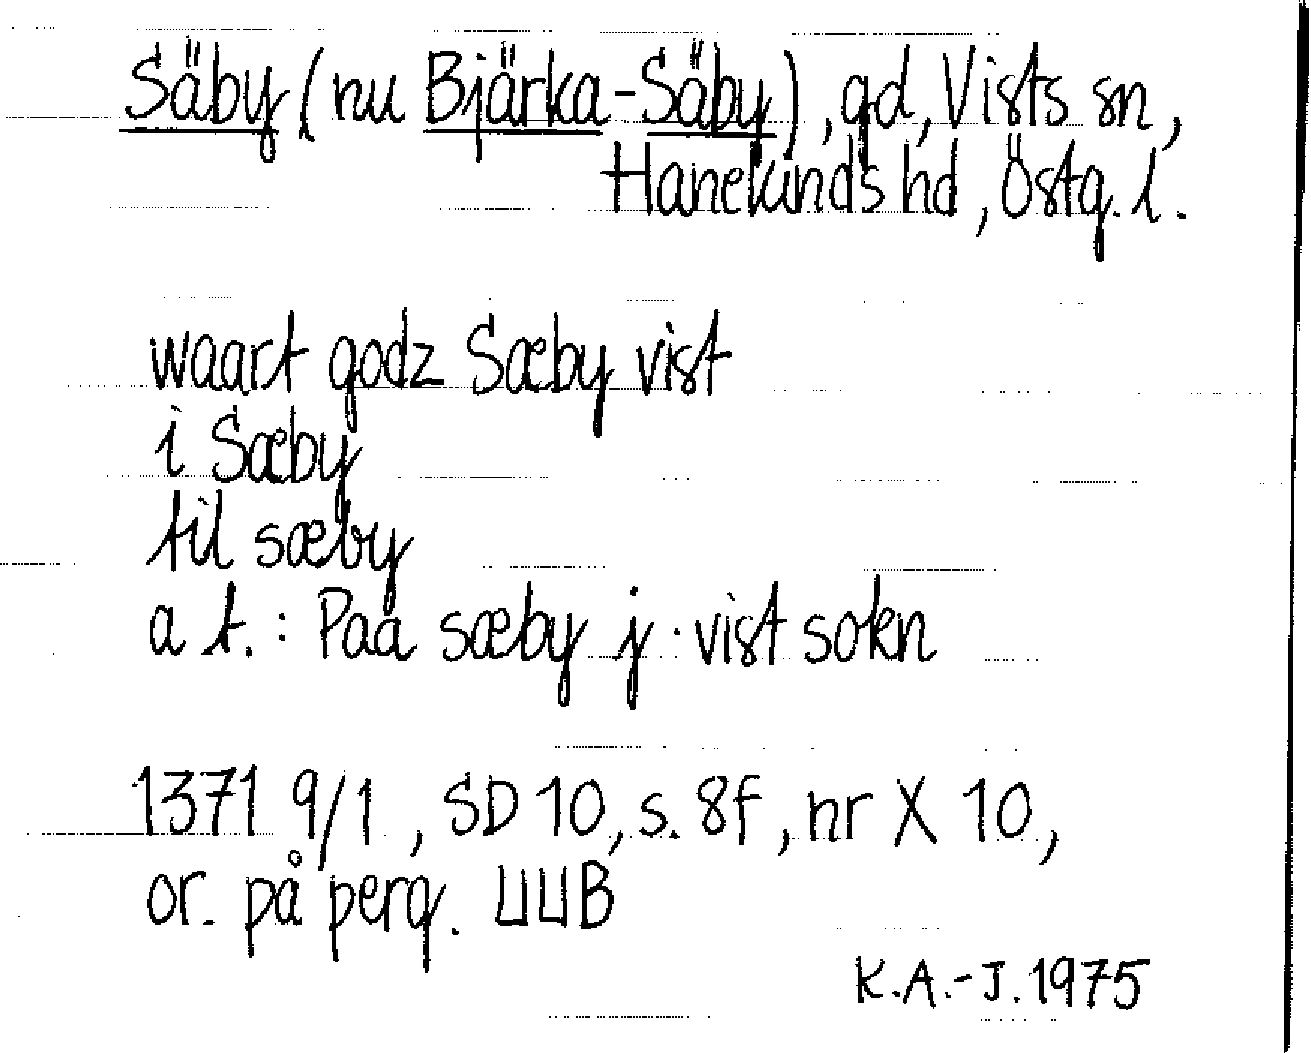 Säby (nu Bjärka-Säby), gd, Vists sn,
Hanekinds hd, Östg. l.
waart godz Sæby vist
i Sæby
til sæby
a t.: Paa sæby j · vist sokn
1371 9/1, SD 10, s. 8f, nr X 10,
or. på perg. UUB
K.A.-J. 1975